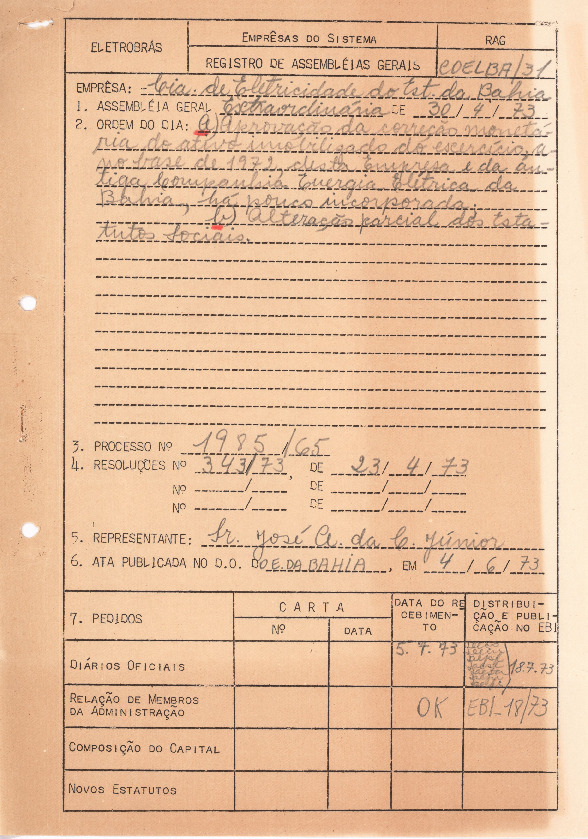 ELETROBRÁS
EMPRÊSAS DO SISTEMA
RAG
REGISTRO DE ASSEMBLÉIAS GERAIS
COELBA/31
EMPRÊSA: Cia. de Eletricidade do Est. da Bahia
1. ASSEMBLÉIA GERAL Extraordinária DE 30/4/73
2. ORDEM DO DIA: a) Aprovação da correção monetá-
ria do ativo imobilizado do exercício, a-
no base de 1972, desta Emprêsa e da an-
tiga Companhia Energia Elétrica da
Bahia, há pouco incorporada.
b) Alteração parcial dos Esta-
tutos Sociais.
3. PROCESSO Nº 1985/65
4. RESOLUÇÕES Nº 343/73, DE 23/4/73
Nº / DE / /
Nº / DE / /
5. REPRESENTANTE: Sr. José A. da C. Júnior
6. ATA PUBLICADA NO D.O. DO E.DA BAHIA, EM 4/6/73
7. PEDIDOS
CARTA
Nº
DATA
DATA DO RE
CEBIMEN-
TO
DISTRIBUI-
ÇÃO E PUBLI-
CAÇÃO NO EBI
DIÁRIOS OFICIAIS
5.7.73
18.7.73
RELAÇÃO DE MEMBROS
DA ADMINISTRAÇÃO
OK
EBI-18/73
COMPOSIÇÃO DO CAPITAL
NOVOS ESTATUTOS